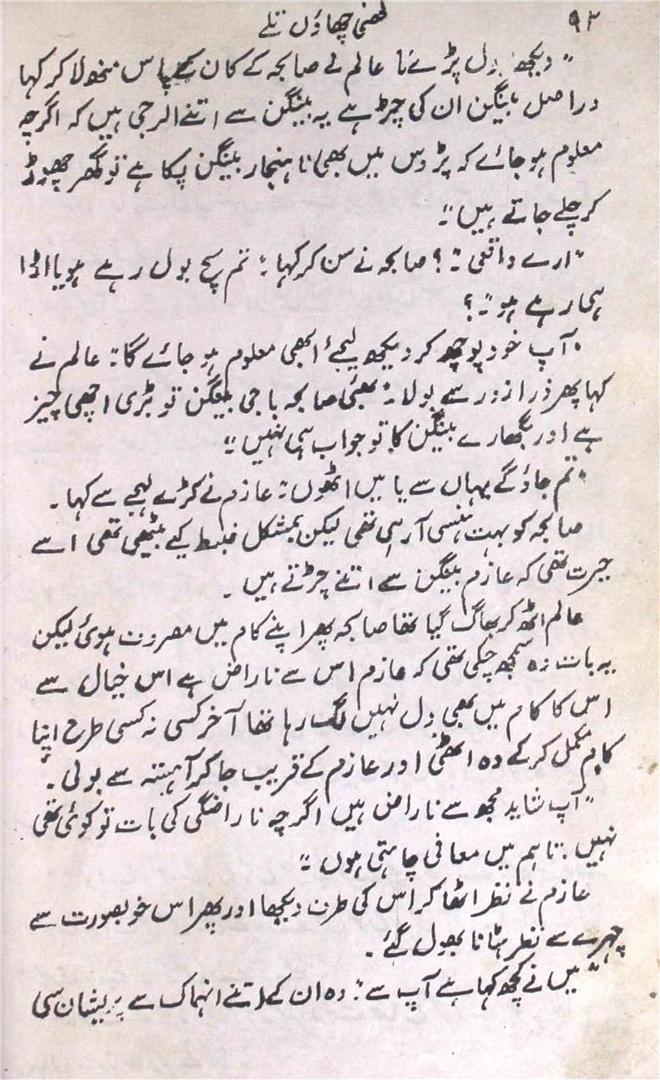 ۹۲ گھنی چھاؤں تلے
" دیکھو بول پڑے نا عالم نے صابحہ کے کان کے پاس منھ لا کر کہا
دراصل بینگن ان کی چڑ ہے یہ بینگن سے اتنے الرجی ہیں کہ اگرچہ
معلوم ہو جائے کہ پڑوس میں بھی ناہنجار بینگن پکا ہے تو گھر چھوڑ
کر چلے جاتے ہیں "۔
"ارے واقعی "؟ صابحہ نے سن کر کہا : تم سچ بول رہے ہو یا اڑا
ہی رہے ہو "؟
"آپ خود پوچھ کر دیکھ لیجئے ابھی معلوم ہو جائے گا: عالم نے
کہا پھر ذرا زور سے بولا : بھئی صابحہ باجی بینگن تو بڑی اچھی چیز
ہے اور بگھارے بینگن کا تو جواب ہی نہیں "۔
"تم جاؤ گے یہاں سے یا میں اٹھوں: عازم نے کڑے لہجے سے کہا ۔
صابحہ کو بہت ہنسی آ رہی تھی لیکن بمشکل ضبط کیے بیٹھی تھی اسے
حیرت تھی کہ عازم بینگن سے اتنے چڑتے ہیں ۔
عالم اٹھ کر بھاگ گیا تھا صابحہ پھر اپنے کام میں مصروف ہوئی لیکن
یہ بات وہ سمجھ چکی تھی کہ عازم اس سے ناراض ہے اس خیال سے
اس کا کام میں بھی دل نہیں لگ رہا تھا آخر کسی نہ کسی طرح اپنا
کام مکمل کر کے وہ اٹھی اور عازم کے قریب جا کر آہستہ سے بولی ۔
"آپ شاید مجھ سے ناراض ہیں اگرچہ ناراضگی کی بات تو کوئی تھی
نہیں ۔ تاہم میں معافی چاہتی ہوں "۔
عازم نے نظر اٹھا کر اس کی طرف دیکھا اور پھر اس خوبصورت سے
چہرے سے نظر ہٹانا بھول گئے ۔
" میں نے کچھ کہا ہے آپ سے : وہ ان کے اتنے انہماک سے پریشان سی